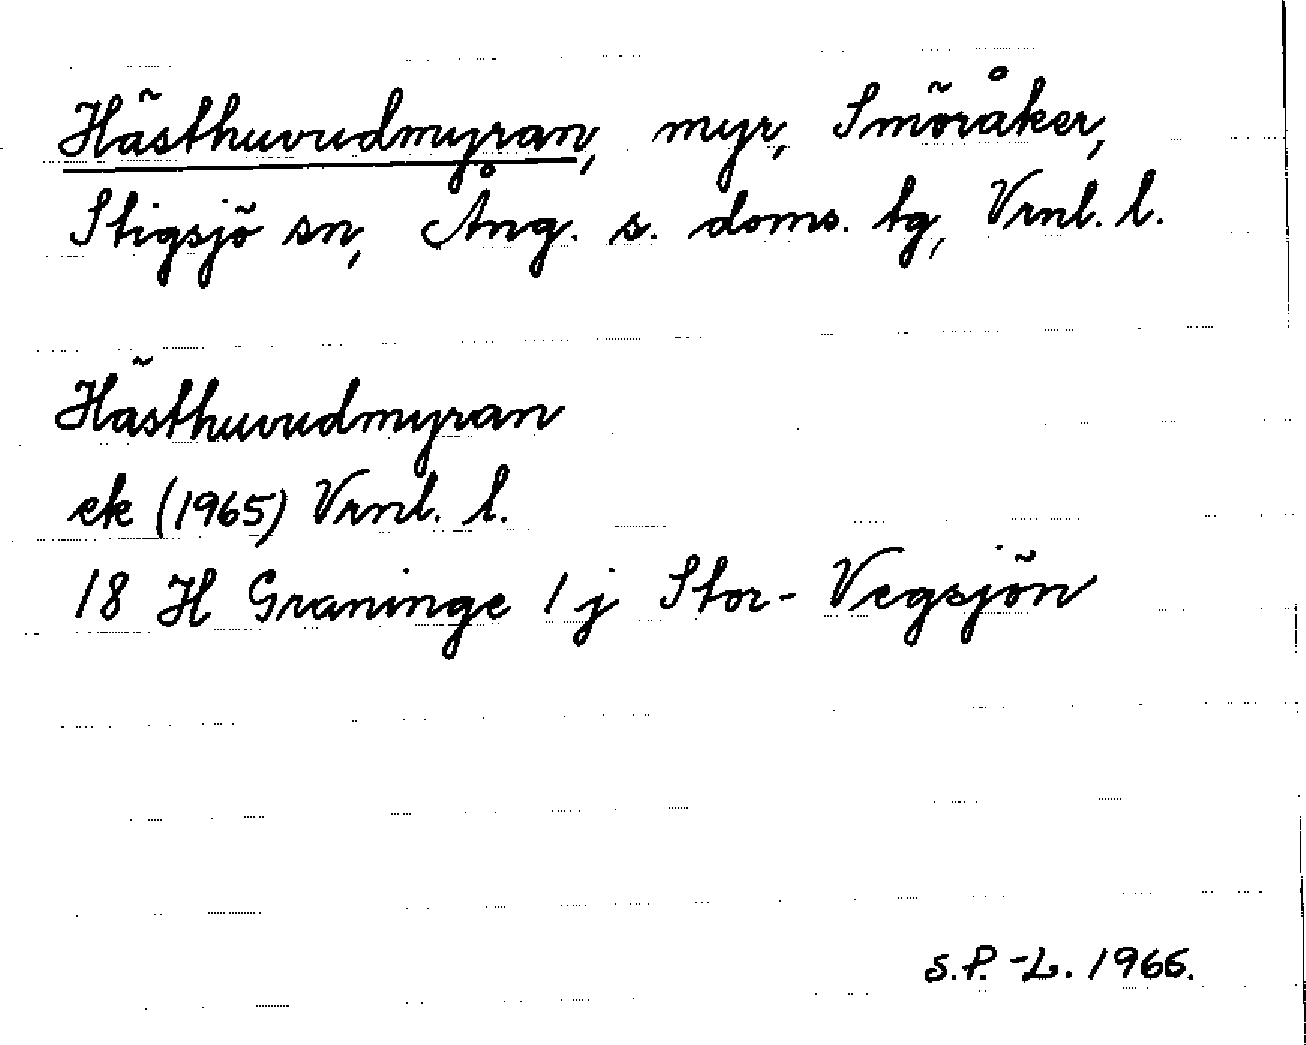 Hästhuvudmyran, myr, Smöråker,
Stigsjö sn, Ång. s. doms. tg, Vrnl. l.
Hästhuvudmyran
ek (1965) Vrnl. l.
18 H Graninge 1 j Stor-Vegsjön
S.P.-L. 1966.